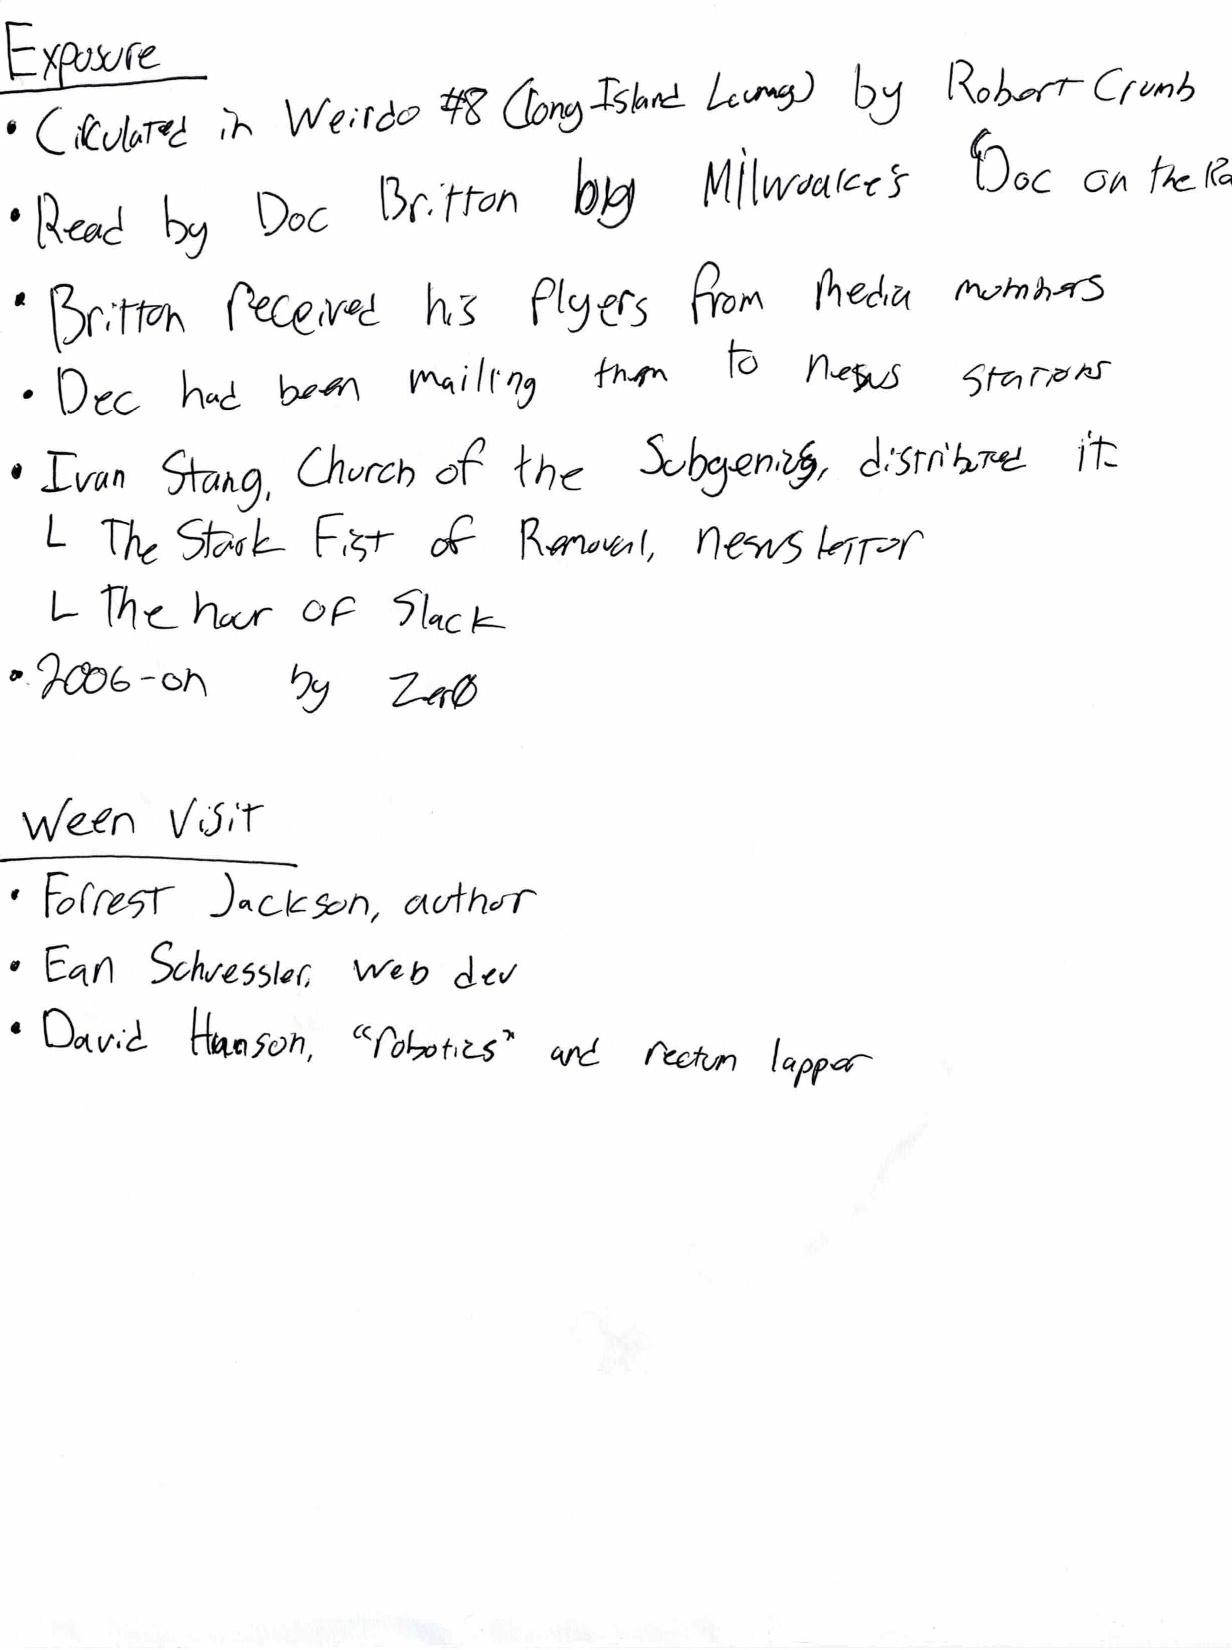 Exposure
• Circulated in Weirdo #8 (Long Island Loung) by Robert Crumb
• Read by Doc Britton by Milwaukee's "Doc on the Ra
• Britton received his flyers from media members
• Dec had been mailing them to news stations
• Ivan Stang, Church of the Subgenius, distributed it
L The Stark Fist of Removal, newsletter
L The hour of Slack
• 2006-on by Zer0
Ween Visit
• Forrest Jackson, author
• Ean Schuessler, web dev
• David Hanson, "robotics" and rectum lapper